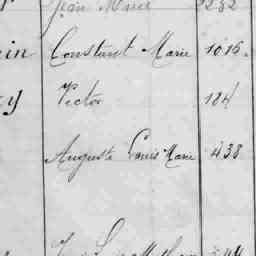 Jean Marie 2232
in Constant Marie 1016.
y Victor 184
Auguste Louis Marie 438